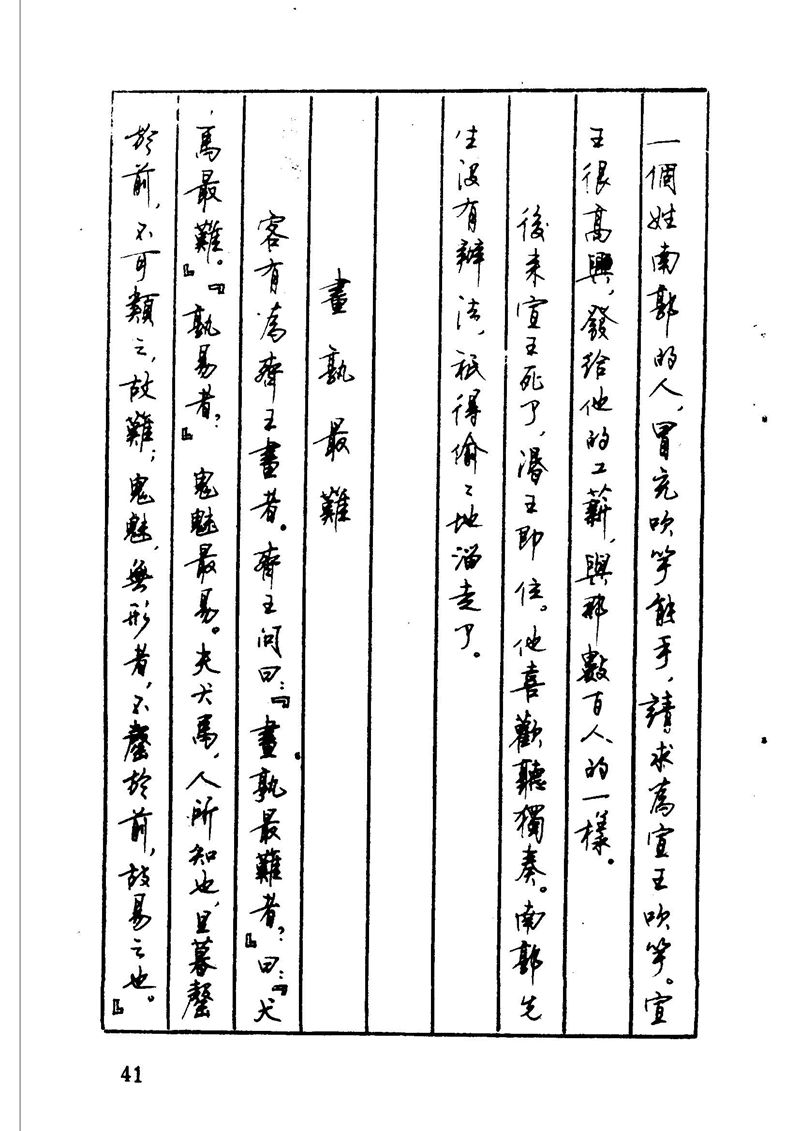 一個姓南郭的人，冒充吹竽能手，請求為宣王吹竽。宣
王很高興，發給他的工薪，與那數百人的一樣。
後來宣王死了，湣王即位。他喜歡聽獨奏。南郭先
生沒有辦法，祇得偷〻地溜走了。
畫孰最難
客有為齊王畫者。齊王問曰：『畫孰最難者？』曰：『犬
馬最難。』『孰易者？』鬼魅最易。夫犬馬，人所知也，旦暮罄
於前，不可類之，故難；鬼魅，無形者，不罄於前，故易之也。』
41